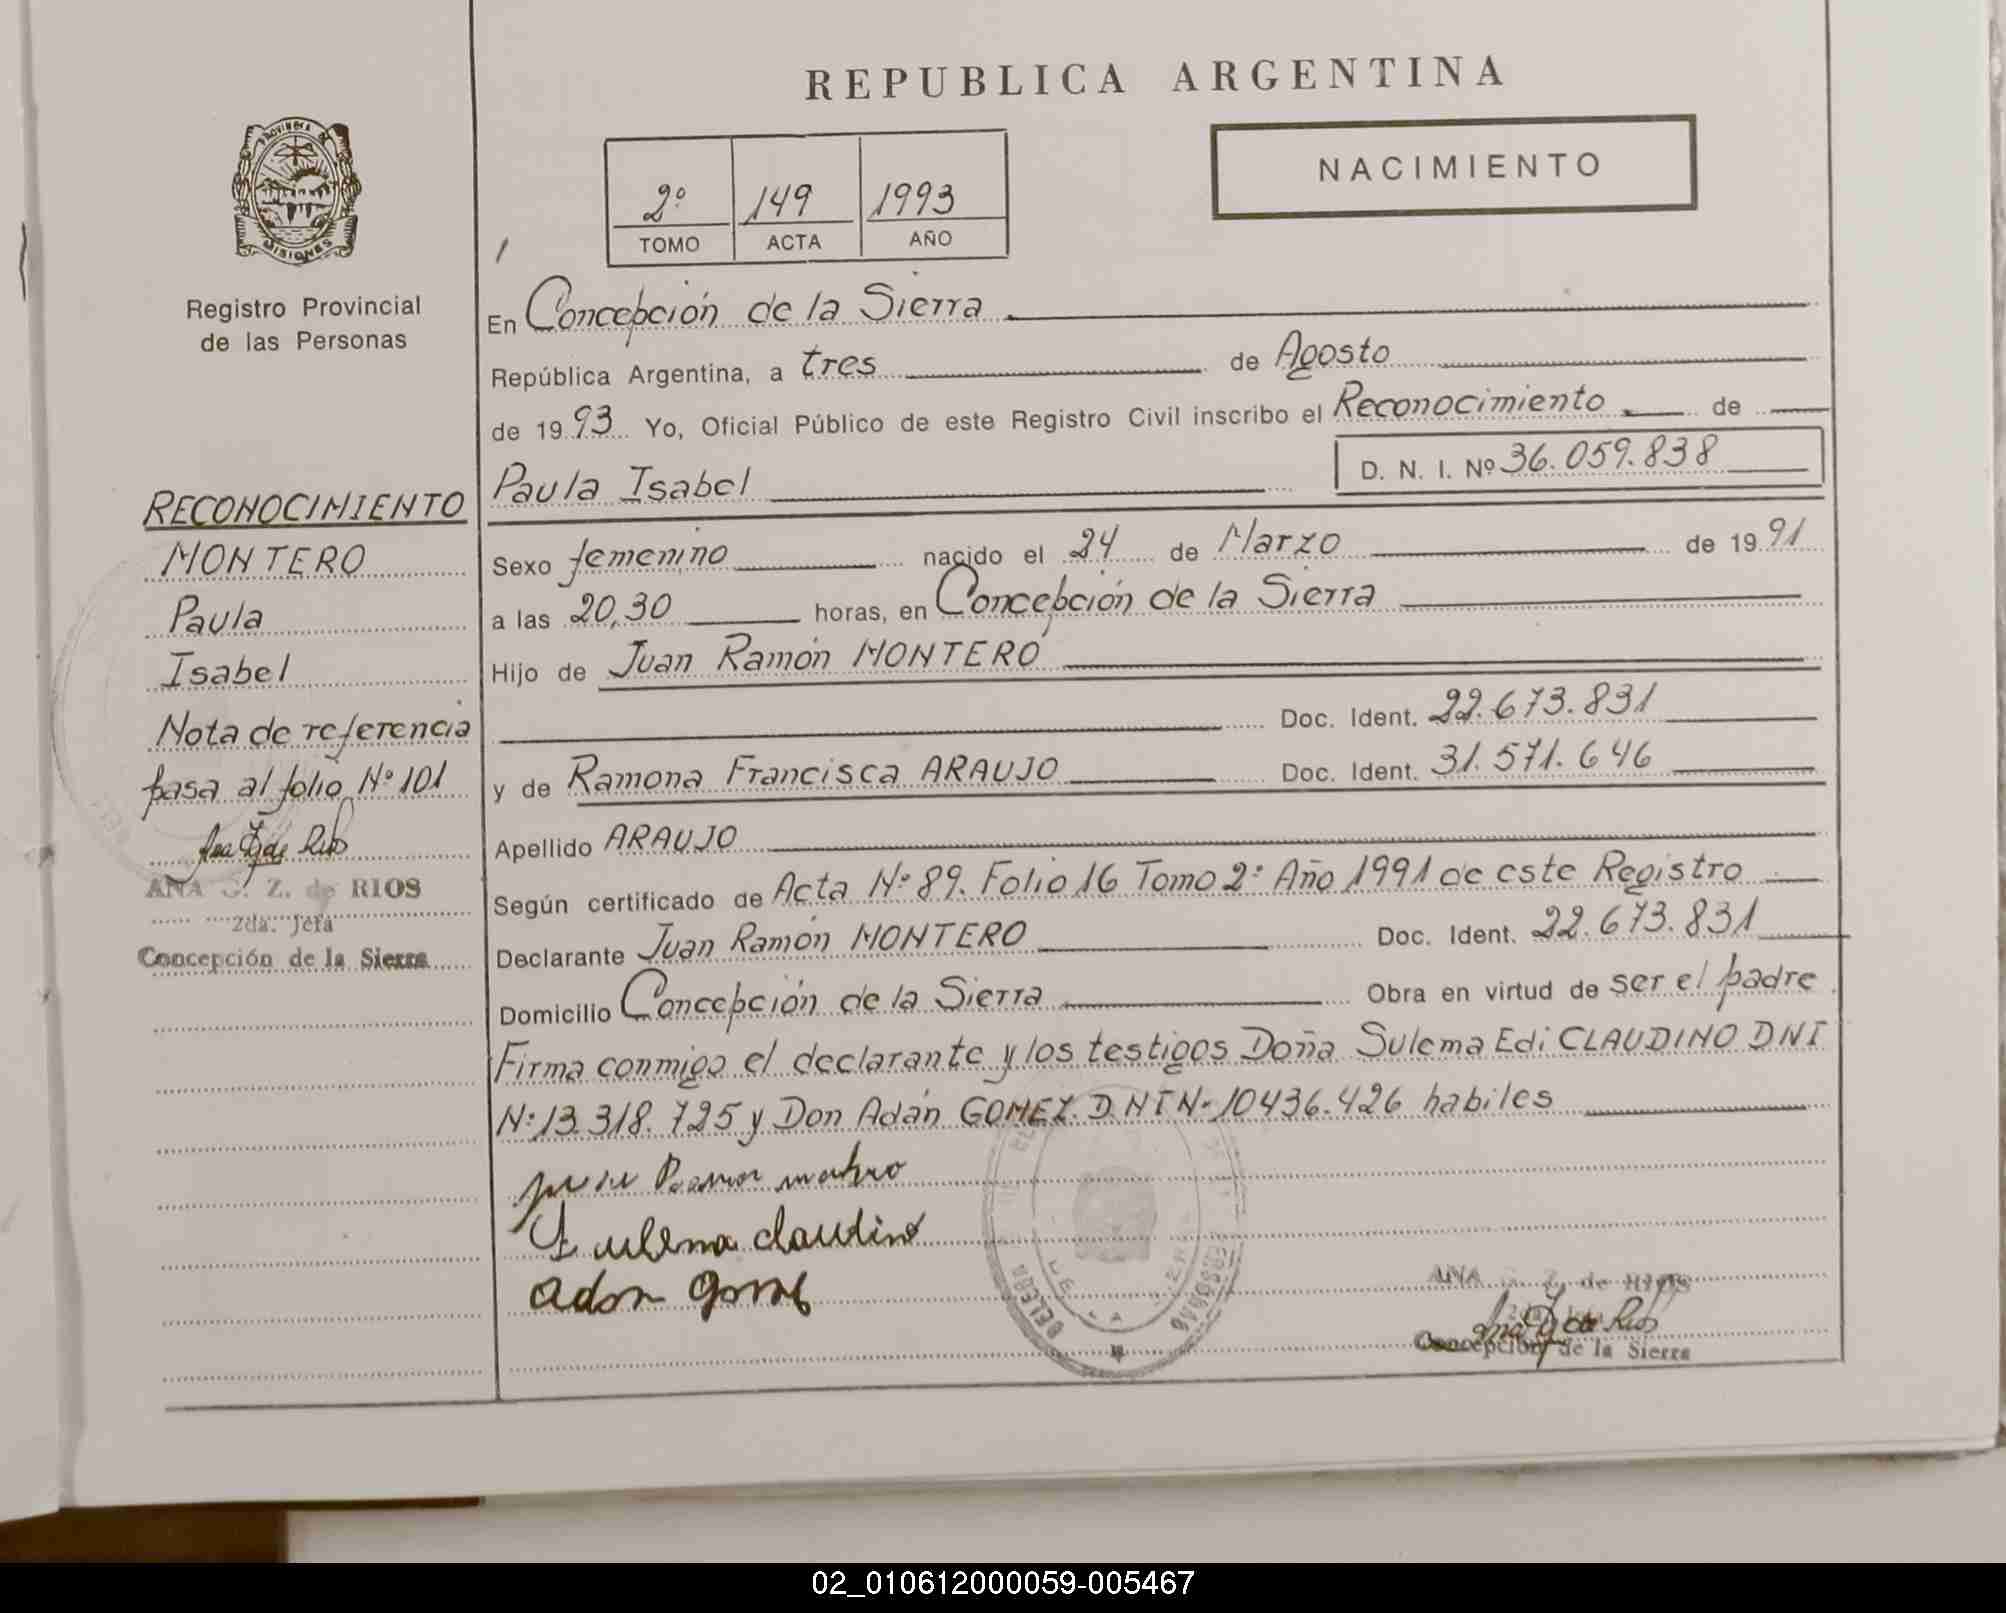 REPUBLICA ARGENTINA
PROVINCIA DE
MISIONES
Registro Provincial
de las Personas
2º 149 1993
TOMO ACTA AÑO
NACIMIENTO
En Concepción de la Sierra
República Argentina, a tres de Agosto
de 1993 Yo, Oficial Público de este Registro Civil inscribo el Reconocimiento de
Paula Isabel D. N. I. Nº 36.059.838
Sexo femenino nacido el 24 de Marzo de 1991
a las 20,30 horas, en Concepción de la Sierra
Hijo de Juan Ramón MONTERO
Doc. Ident. 22.673.831
y de Ramona Francisca ARAUJO Doc. Ident. 31.571.646
Apellido ARAUJO
Según certificado de Acta Nº 89. Folio 16 Tomo 2º Año 1991 de este Registro
Declarante Juan Ramón MONTERO Doc. Ident. 22.673.831
Domicilio Concepción de la Sierra Obra en virtud de ser el padre
Firma conmigo el declarante y los testigos Doña Sulema Edi CLAUDINO DNI
Nº 13.318.725 y Don Adán GOMEZ. DNI Nº 10436.426 habiles
Sulema Claudino
Adan Gomez
ANA de RIOS
Concepción de la Sierra
RECONOCIMIENTO
MONTERO
Paula
Isabel
Nota de referencia
pasa al folio Nº 101
Ana Z de Rios
ANA C. Z. de RIOS
2da. Jefa
Concepción de la Sierra
02_010612000059-005467